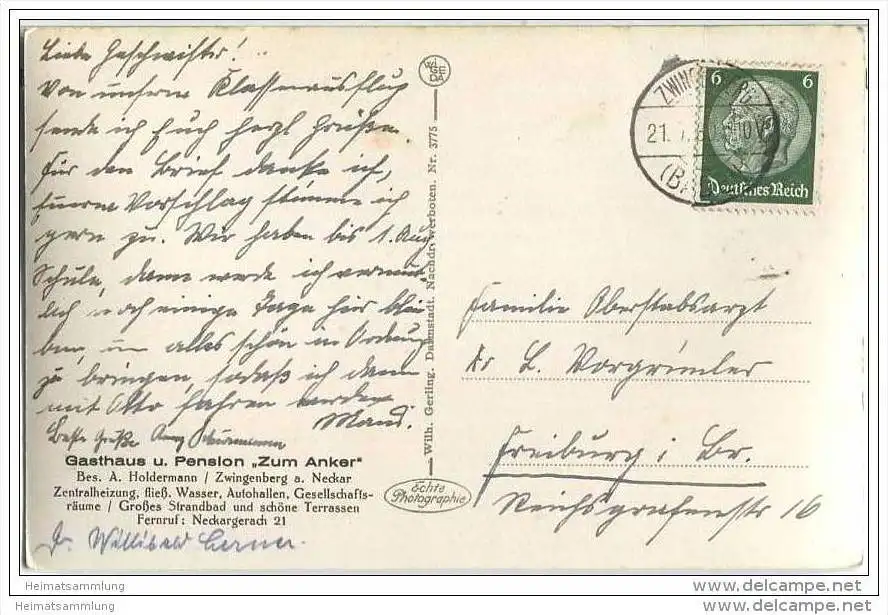 Liebe Geschwister!
Von unserem Klassenausflug
sende ich Euch herzl Grüße.
Für den Brief danke ich,
Eurem Vorschlag stimme ich
gern zu. Wir haben bis 1. Aug
Schule, dann werde ich vermut-
lich noch einige Tage hier blei-
ben, um alles schön in Ordnung
zu bringen, sodaß ich dann
mit Otto fahren werde.
Beste Grüße
Gasthaus u. Pension „Zum Anker"
Bes. A. Holdermann / Zwingenberg a. Neckar
Zentralheizung, fließ. Wasser, Autohallen, Gesellschafts-
räume / Großes Strandbad und schöne Terrassen
Fernruf: Neckargerach 21
Dr. Willibald
WIGEDA
Wilh. Gerling, Darmstadt. Nachdr. verboten. Nr. 3775
Echte
Photographie
21. 7.
10 V
6 6
Deutsches Reich
Familie Oberstabsarzt
Dr L. Vorgrimler
Freiburg i. Br.
Reichsgrafenstr 16
Heimatsammlung
Heimatsammlung
www.delcampe.net
www.delcampe.net